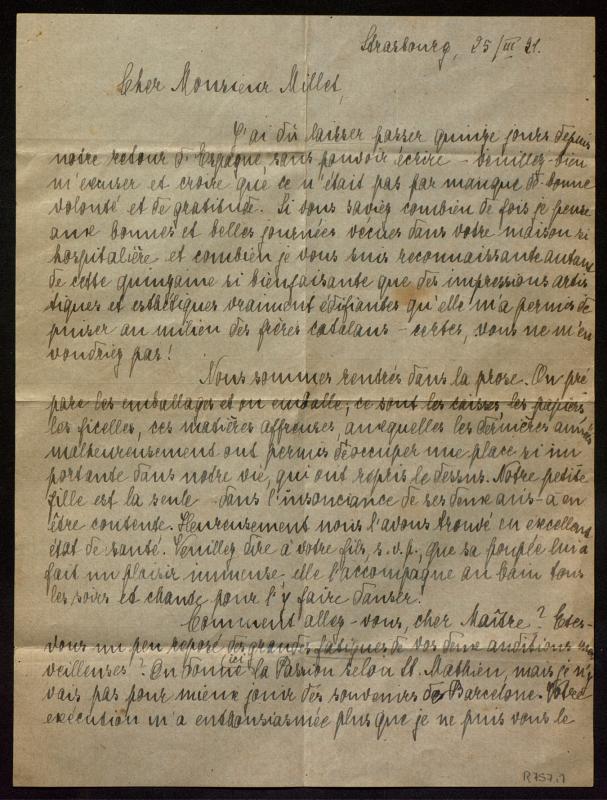 Strasbourg, 25/III 21.
Cher Monsieur Millet,
J'ai dû laisser passer quinze jours depuis
notre retour d'Espagne sans pouvoir écrire - veuillez bien
m'excuser et croire que ce n'était pas par manque de bonne
volonté et de gratitude. Si vous saviez combien de fois je pense
aux bonnes et belles journées vécues dans votre maison si
hospitalière et combien je vous suis reconnaissante autant
de cette quinzaine si bienfaisante que des impressions artis
tiques et esthétiques vraiment édifiantes qu'elle m'a permis de
puiser au milieu des frères catalans - certes, vous ne m'en
voudriez pas!
Nous sommes rentrés dans la prose. On pré
pare les emballages et on emballe, ce sont les caisses, les papiers
les ficelles, ces matières affreuses, auxquelles les dernières années
malheureusement ont permis d'occuper une place si im
portante dans notre vie, qui ont repris le dessus. Notre petite
fille est la seule - dans l'insonciance de ses deux ans - a en
être contente. Heureusement nous l'avons trouvé en excellent
état de santé. Veuillez dire à votre fils, s.v.p., que sa poupée lui a
fait un plaisir immense, elle l'accompagne au bain tous
les soirs et chante pour l'y faire danser.
Comment allez-vous, cher Maître? Etes-
vous un peu reposé des grandes fatigues de vos deux auditions mer
veilleuses? On donne ici la Passion selon St. Mathieu, mais je n'y
vais pas pour mieux jouir des souvenirs de Barcelone. Votre
exécution m'a enthousiasmée plus que je ne puis vous le
R757.1